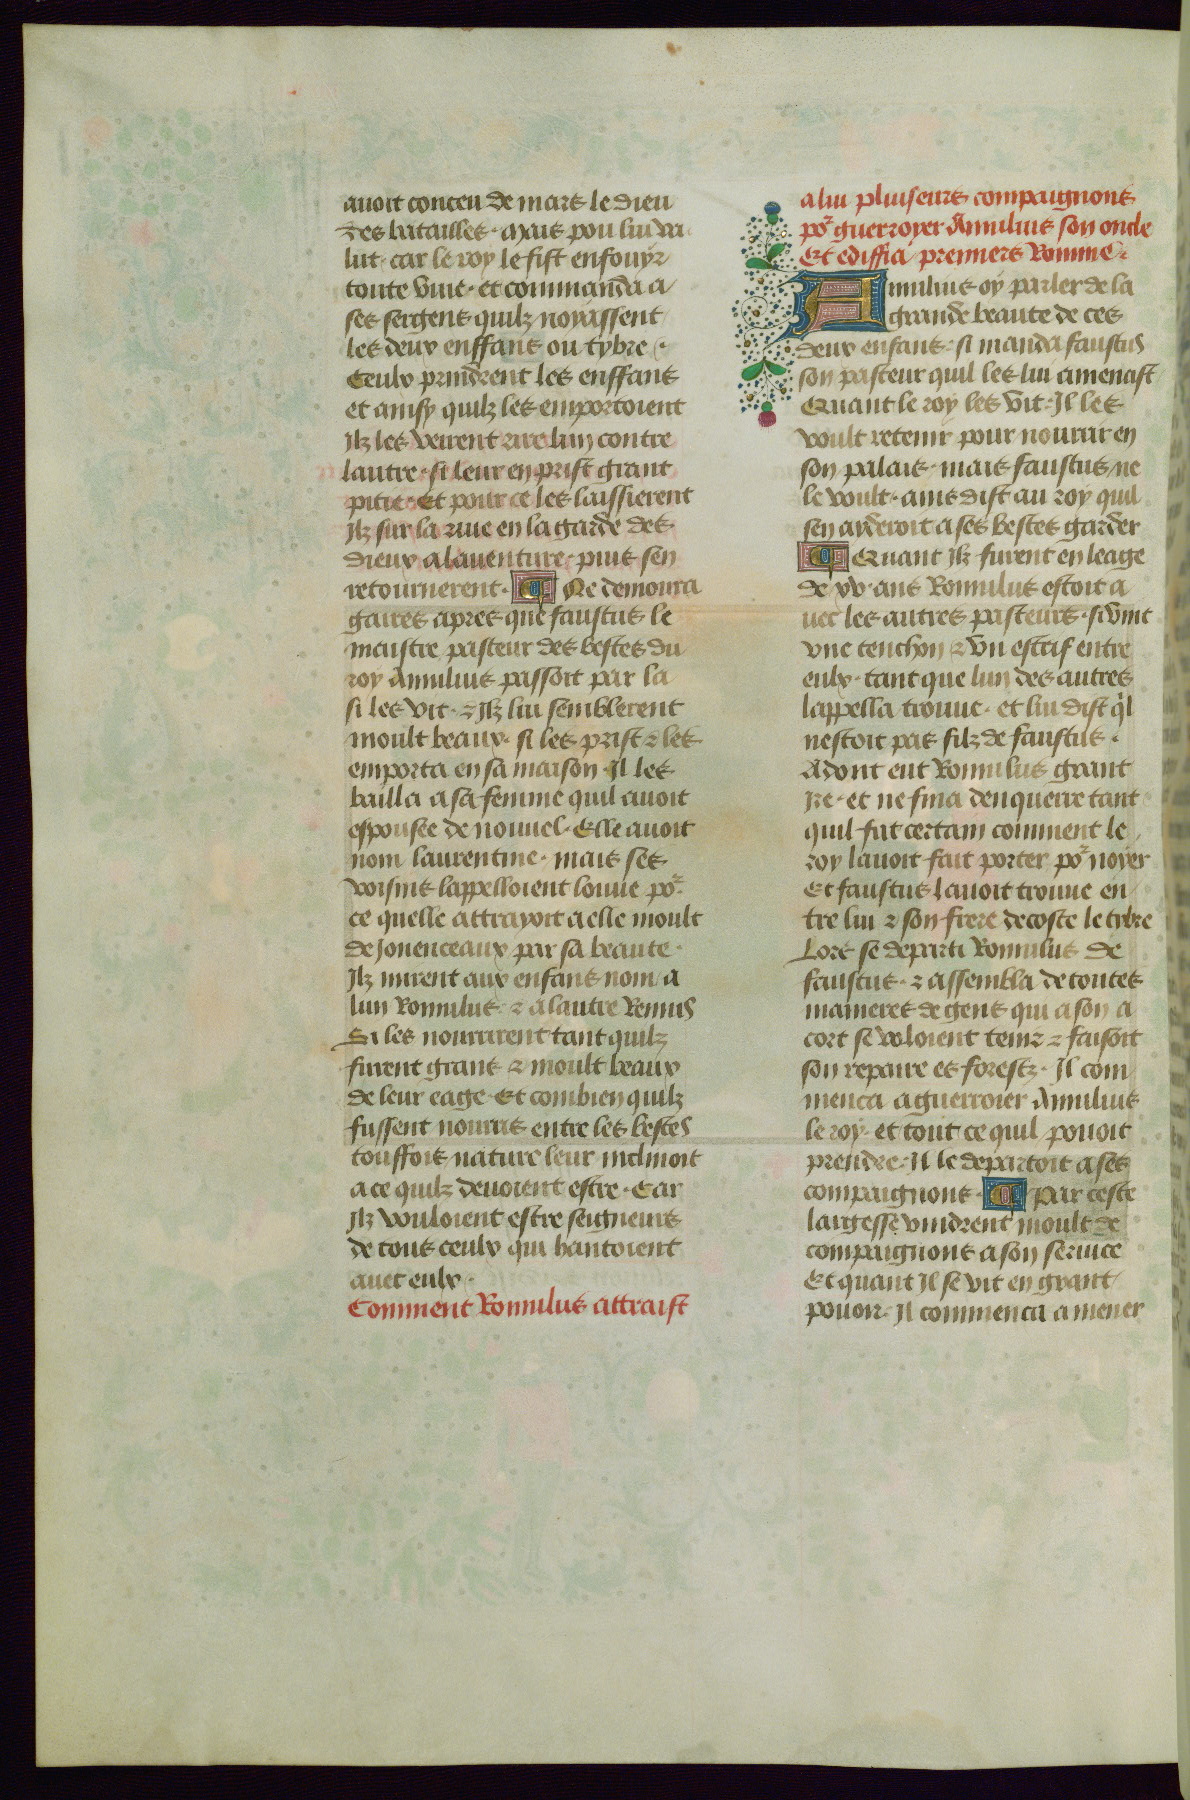 avoit conceu de mars le dieu
des batailles · Mais pou lui va
lut · car le roy le fist enfouyr
toute vive · et commanda a
ses sergens quilz noyassent
les deux enffans ou tybre ·
Ceulx prindrent les enffans
et ainsy quilz les emportoient
Ilz les veirent rire lun contre
lautre · si leur en prist grant
pitie · Et pour ce les laissierent
Ilz sur la rive en la garde des
dieux a laventure · puis sen
retournerent · ¶ Ne demoura
gaires apres que faustus le
maistre pasteur des bestes du
roy Amulius passoit par la
si les vit · ⁊ Ilz lui semblerent
moult beaux · si les prist ⁊ les
emporta en sa maison · Il les
bailla a sa femme quil avoit
espousee de nouvel · Elle avoit
nom laurentine · mais ses
voisins lappelloient louve po͛
ce quelle attrayoit a elle moult
de Jouvenceaux par sa beaute ·
Ilz mirent aux enfans nom a
lun Romulus · ⁊ a lautre Remus
Si les nourrirent tant quilz
furent grans ⁊ moult beaux
de leur eage · Et combien quilz
fussent nourris entre les bestes
touffois nature leur inclinoit
a ce quilz devoient estre · Car
Ilz vouloient estre seigneurs
de tous ceulx qui hantoient
avec eulx ·
Comment Romulus attraist
a lui pluiseurs compaignons
po͛ guerroyer Amulius son oncle
Et ediffia premiers Romme ·
Amulius oy parler de la
grande beaute de ces
deux enfans · si manda faustus
son pasteur quil les lui amenast
Quant le roy les vit · Il les
voult retenir pour nourrir en
son palais · mais faustus ne
le voult · ains dist au roy quil
sen ayderoit a ses bestes garder
¶ Quant Ilz furent en leage
de xv · ans Romulus estoit a
vec les autres pasteurs · si vint
une tenchon ⁊ un estrif entre
eulx · tant que lun des autres
lappella trouve · et lui dist q̇l
nestoit pas filz de faustus ·
Adont eut Romulus grant
Ire · et ne fina denquerre tant
quil fut certain comment le
roy lavoit fait porter po͛ noyer
Et faustus lavoit trouve en
tre lui ⁊ son frere decoste le tybre
Lors se departi Romulus de
faustus · ⁊ assembla de toutes
manieres de gens qui a son a
cort se voloient tenir ⁊ faisoit
son repaire es forestz · Il com
menca a guerroier Amulius
le roy · et tout ce quil povoit
prendre · Il le departoit a ses
compaignons · ¶ Par ceste
largesse vindrent moult de
compaignons a son service
Et quant Il se vit en grant
povoir · Il commenca a mener